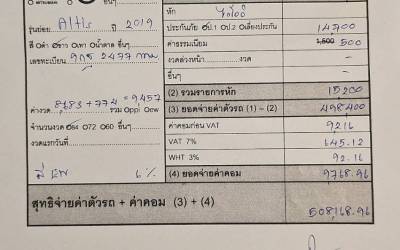 หัก
รุ่นย่อย Altis ปี 2019
ประกันภัย ป1 ป2 เลือกประกัน 14,700
สี ดำ ขาว เทา น้ำตาล อื่นๆ
ค่าธรรมเนียม 1,500 500
เลขทะเบียน 2477 กทม
งวดล่วงหน้า งวด
อื่นๆ
(2) รวมรายการหัก 15200
ค่างวด 8,683 + 774 = 9457 รวม Oppi Oew
(3) ยอดจ่ายค่าตัวรถ (1) - (2) 498,400
จำนวนงวด 84 72 60 อื่นๆ
ค่าคอมก่อน VAT 9216
งวดแรกวันที่
VAT 7% 645.12
WHT 3% 92.16
6%
(4) ยอดจ่ายค่าคอม 9768.96
สุทธิจ่ายค่าตัวรถ + ค่าคอม (3) + (4) 508,168.96